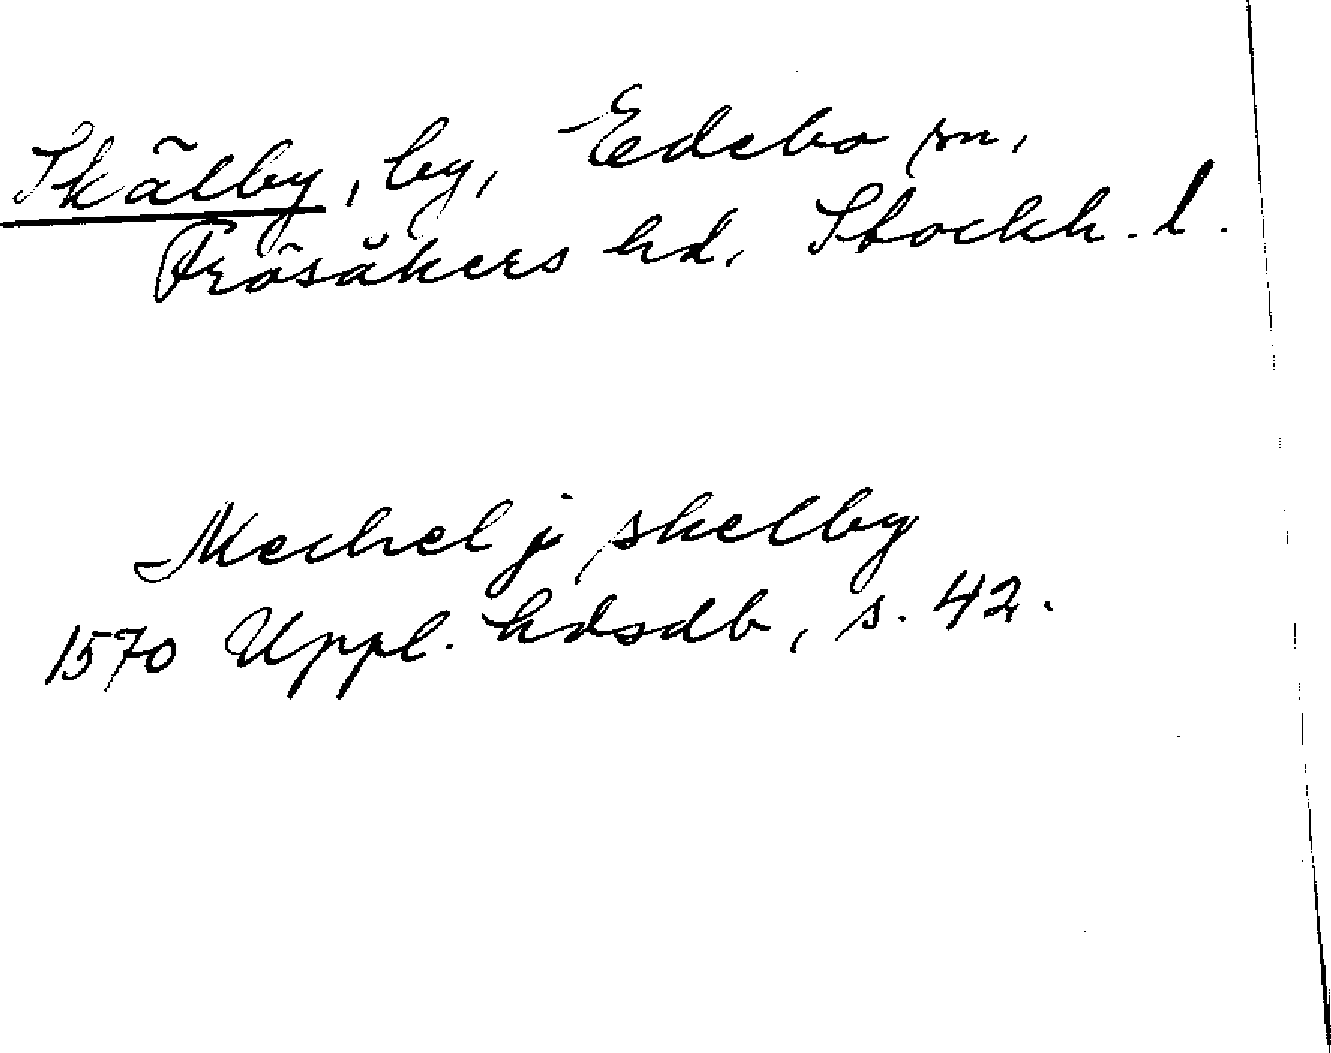 Skälby, by, Edebo sn,
Frösåkers hd, Stockh. l.
Mechel j skelby
1570 Uppl. hdsdb, s. 42.